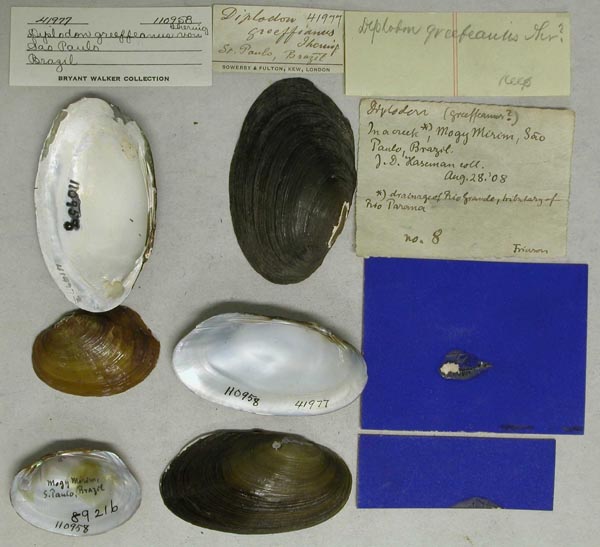 41977 110958
Diplodon greeffeanus von
Ihering
São Paulo
Brazil
BRYANT WALKER COLLECTION
Diplodon 41977
greeffianus
Ihering
So. Paulo, Brazil
SOWERBY & FULTON, KEW, LONDON
Diplodon greefeanus Iher?
Diplodon (greeffeanus?)
In a creek *), Mogy Mirim, São
Paulo, Brazil.
J. D. Haseman coll.
Aug. 28. '08
*) drainage of Rio Grande, tributary of
Rio Parana
no. 8
Frierson
110958
41977
110958 41977
Mogy Mirim,
S. Paulo, Brazil
8921b
110958